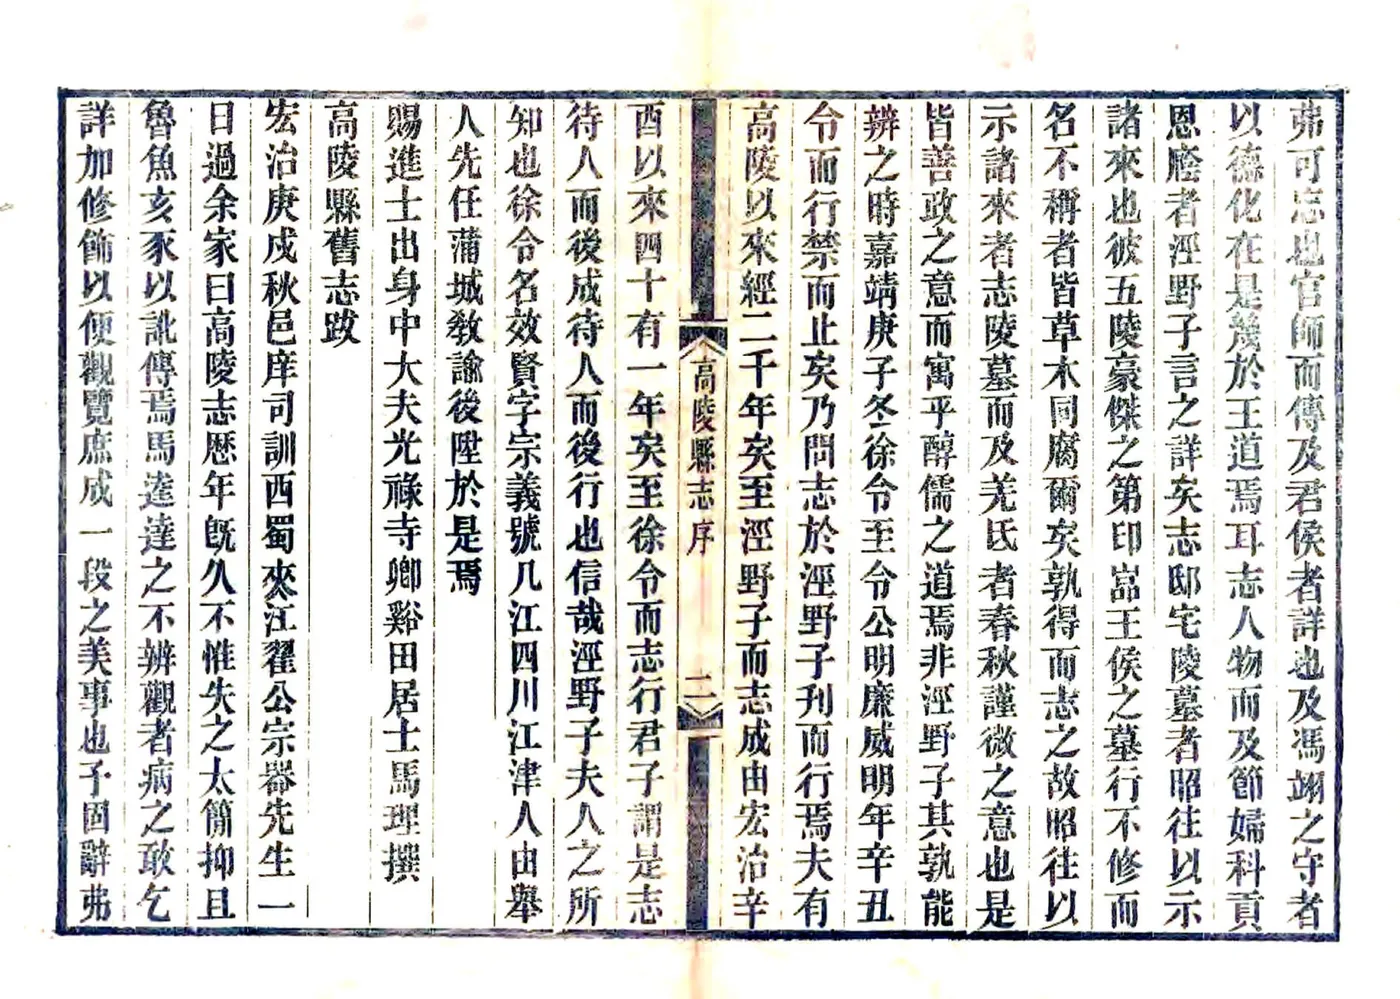 弗可忘也官師而傳及君侯者詳也及馮翊之守者
以德化在是幾於王道焉耳志人物而及節婦科貢
恩廕者涇野子言之詳矣志邸宅陵墓者昭往以示
諸來也彼五陵豪傑之第印嵓王侯之墓行不修而
名不稱者皆草木同腐爾矣孰得而志之故昭往以
示諸來者志陵墓而及羌氐者春秋謹微之意也是
皆善政之意而寓乎醇儒之道焉非涇野子其孰能
辨之時嘉靖庚子冬徐令至令公明廉威明年辛丑
令而行禁而止矣乃問志於涇野子刋而行焉夫有
高陵以來經二千年矣至涇野子而志成由宏治辛
高陵縣志序
二
酉以來四十有一年矣至徐令而志行君子謂是志
待人而後成待人而後行也信哉涇野子夫人之所
知也徐令名效賢字宗義號几江四川江津人由舉
人先任蒲城教諭後陞於是焉
賜進士出身中大夫光祿寺卿谿田居士馬理撰
高陵縣舊志跋
宏治庚戍秋邑庠司訓西蜀夾江翟公宗器先生一
日過余家曰高陵志歷年既久不惟失之太簡抑且
魯魚亥豕以訛傳焉馬逵達之不辨觀者病之敢乞
詳加修飾以便觀覽庶成一段之美事也予固辭弗